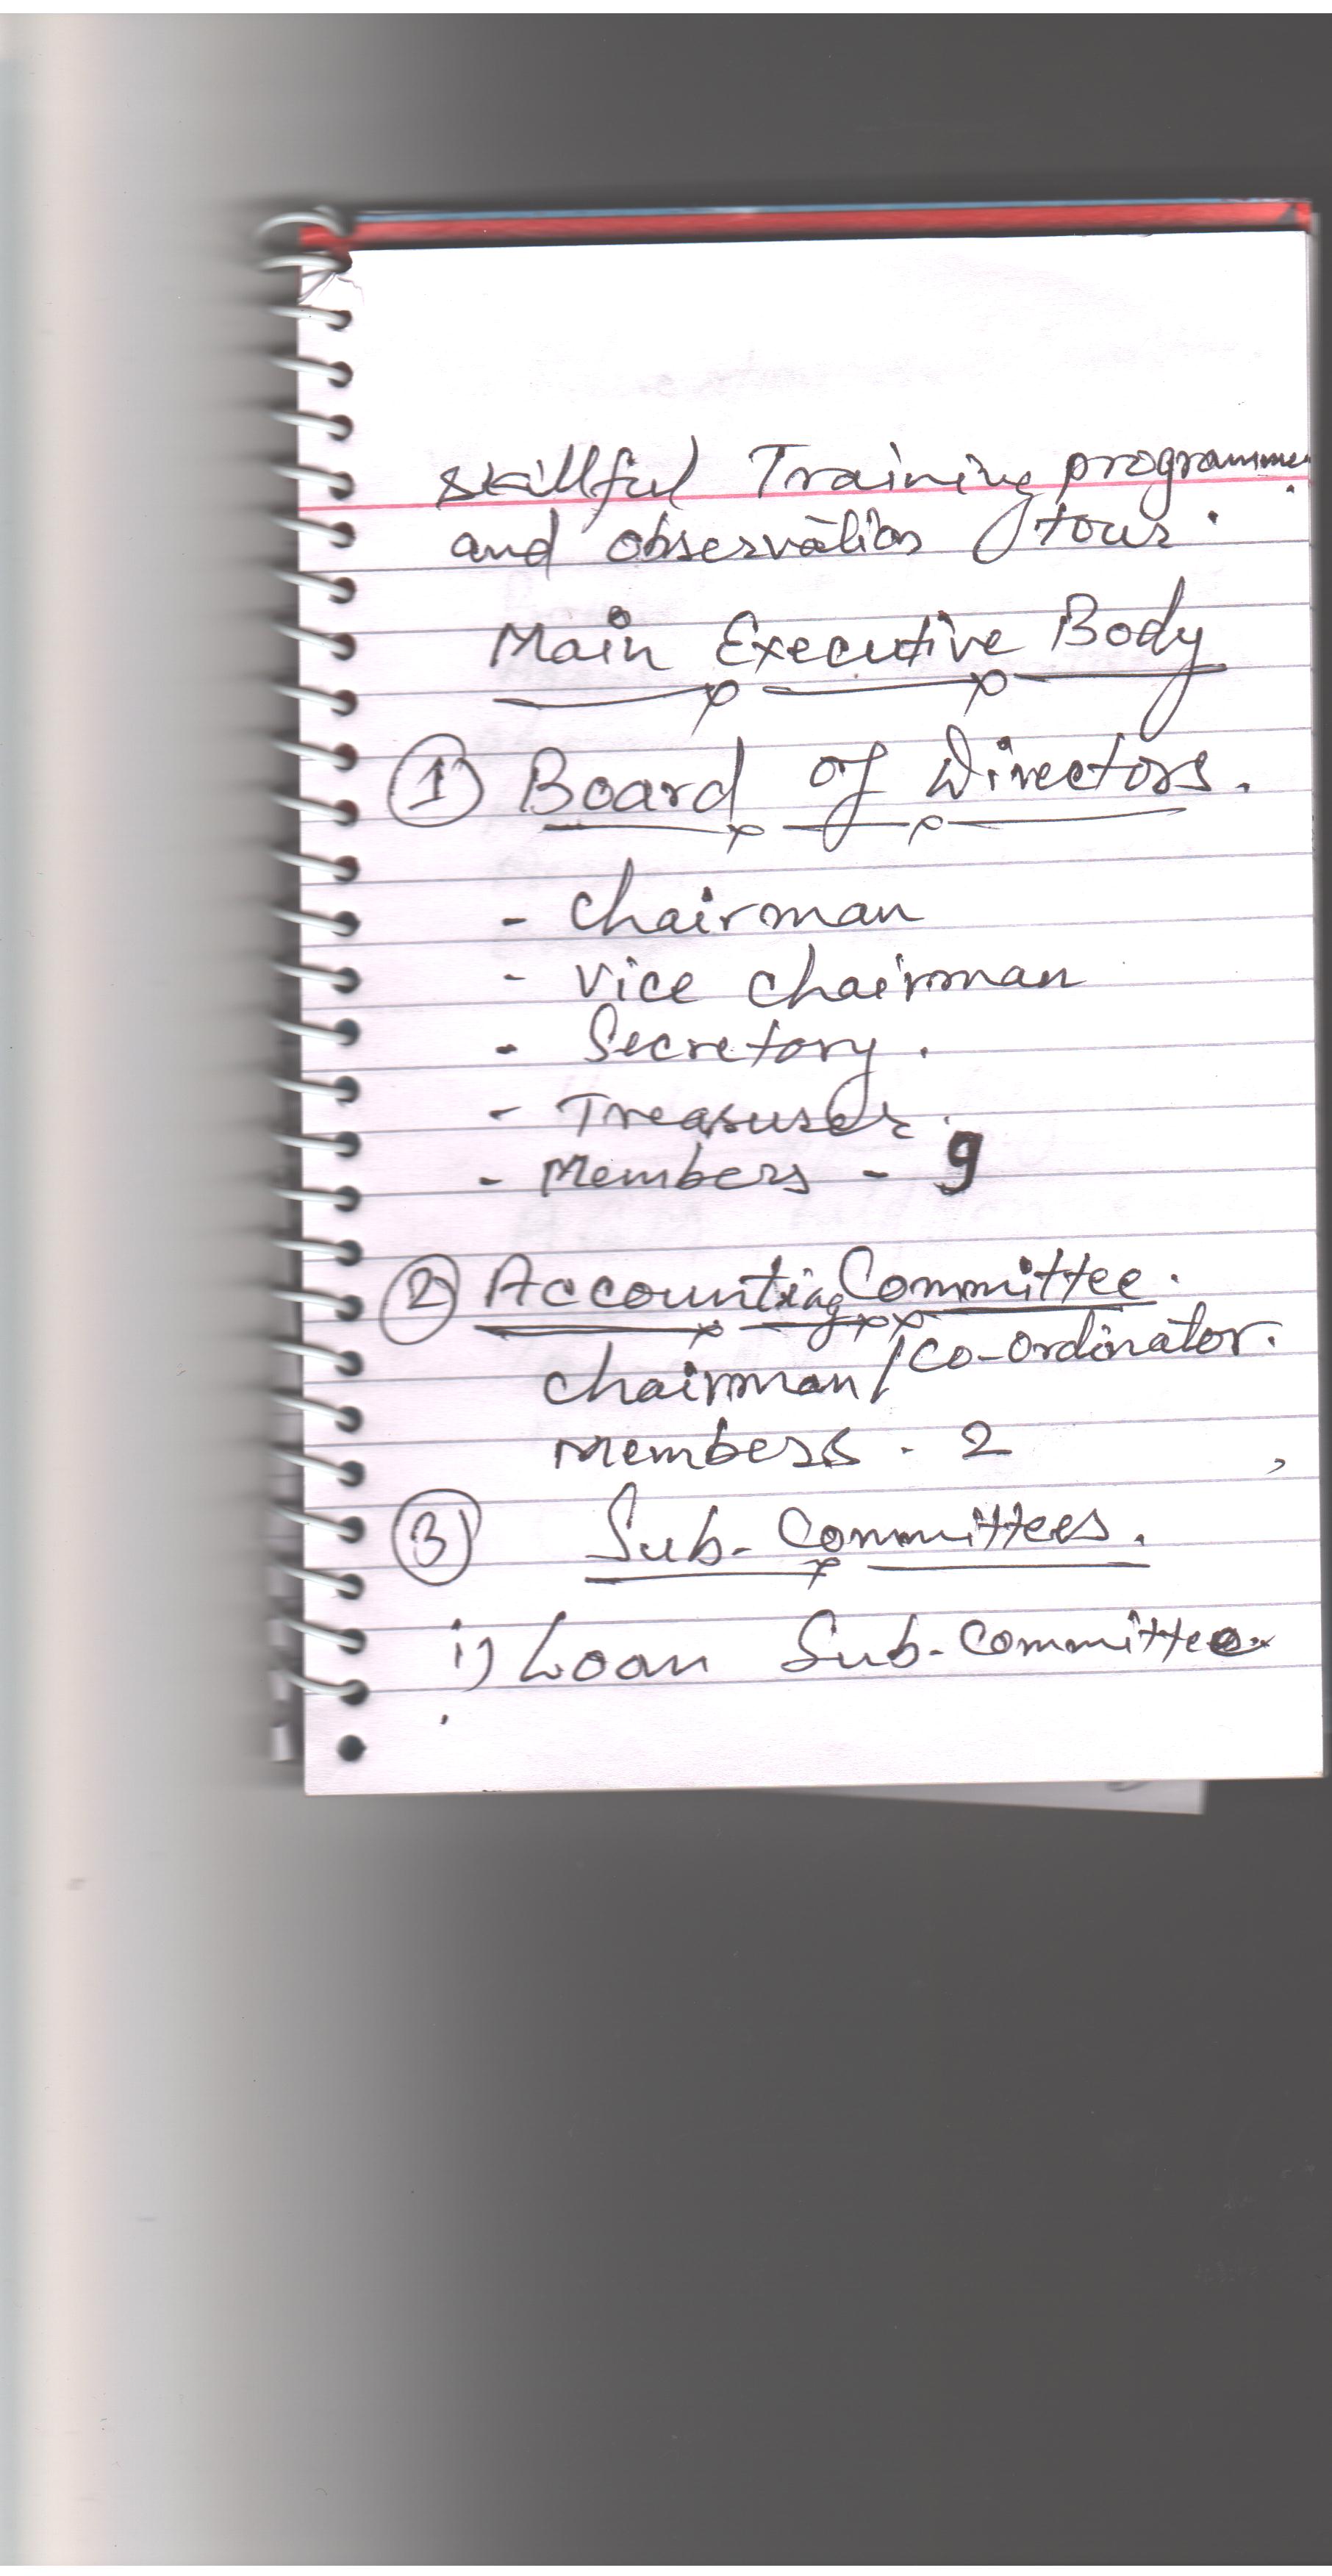 skillful Training programme.
and observation tour.
Main Executive Body
1 Board of Directors.
- Chairman
- Vice chairman
- Secretory.
- Treasurer.
- Members - 9
2 Accounting Committee.
Chairman/Co-ordinator.
Members - 2
3 Sub-Committees.
i) Loan Sub-Committee.